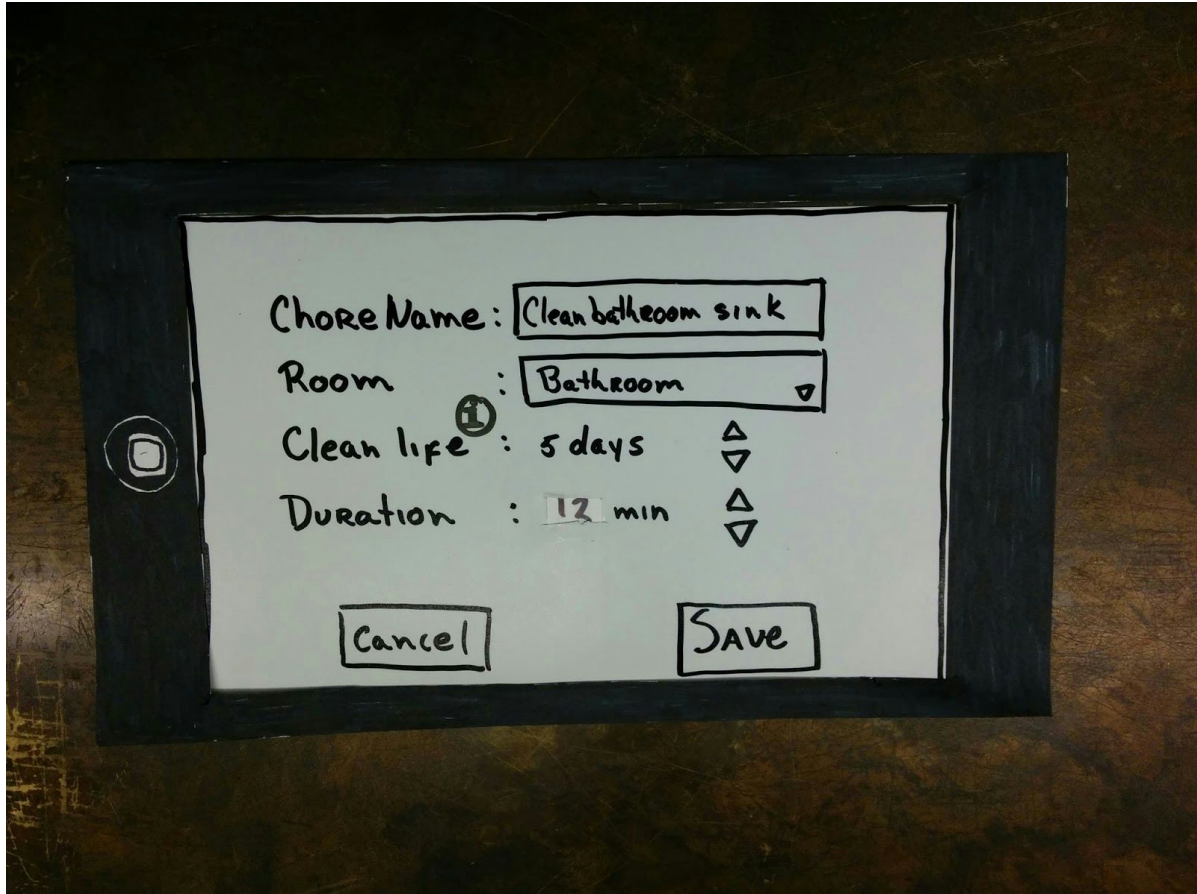 Chore Name: Clean bathroom sink
Room : Bathroom
i
Clean life : 5 days
Duration : 12 min
Cancel
Save